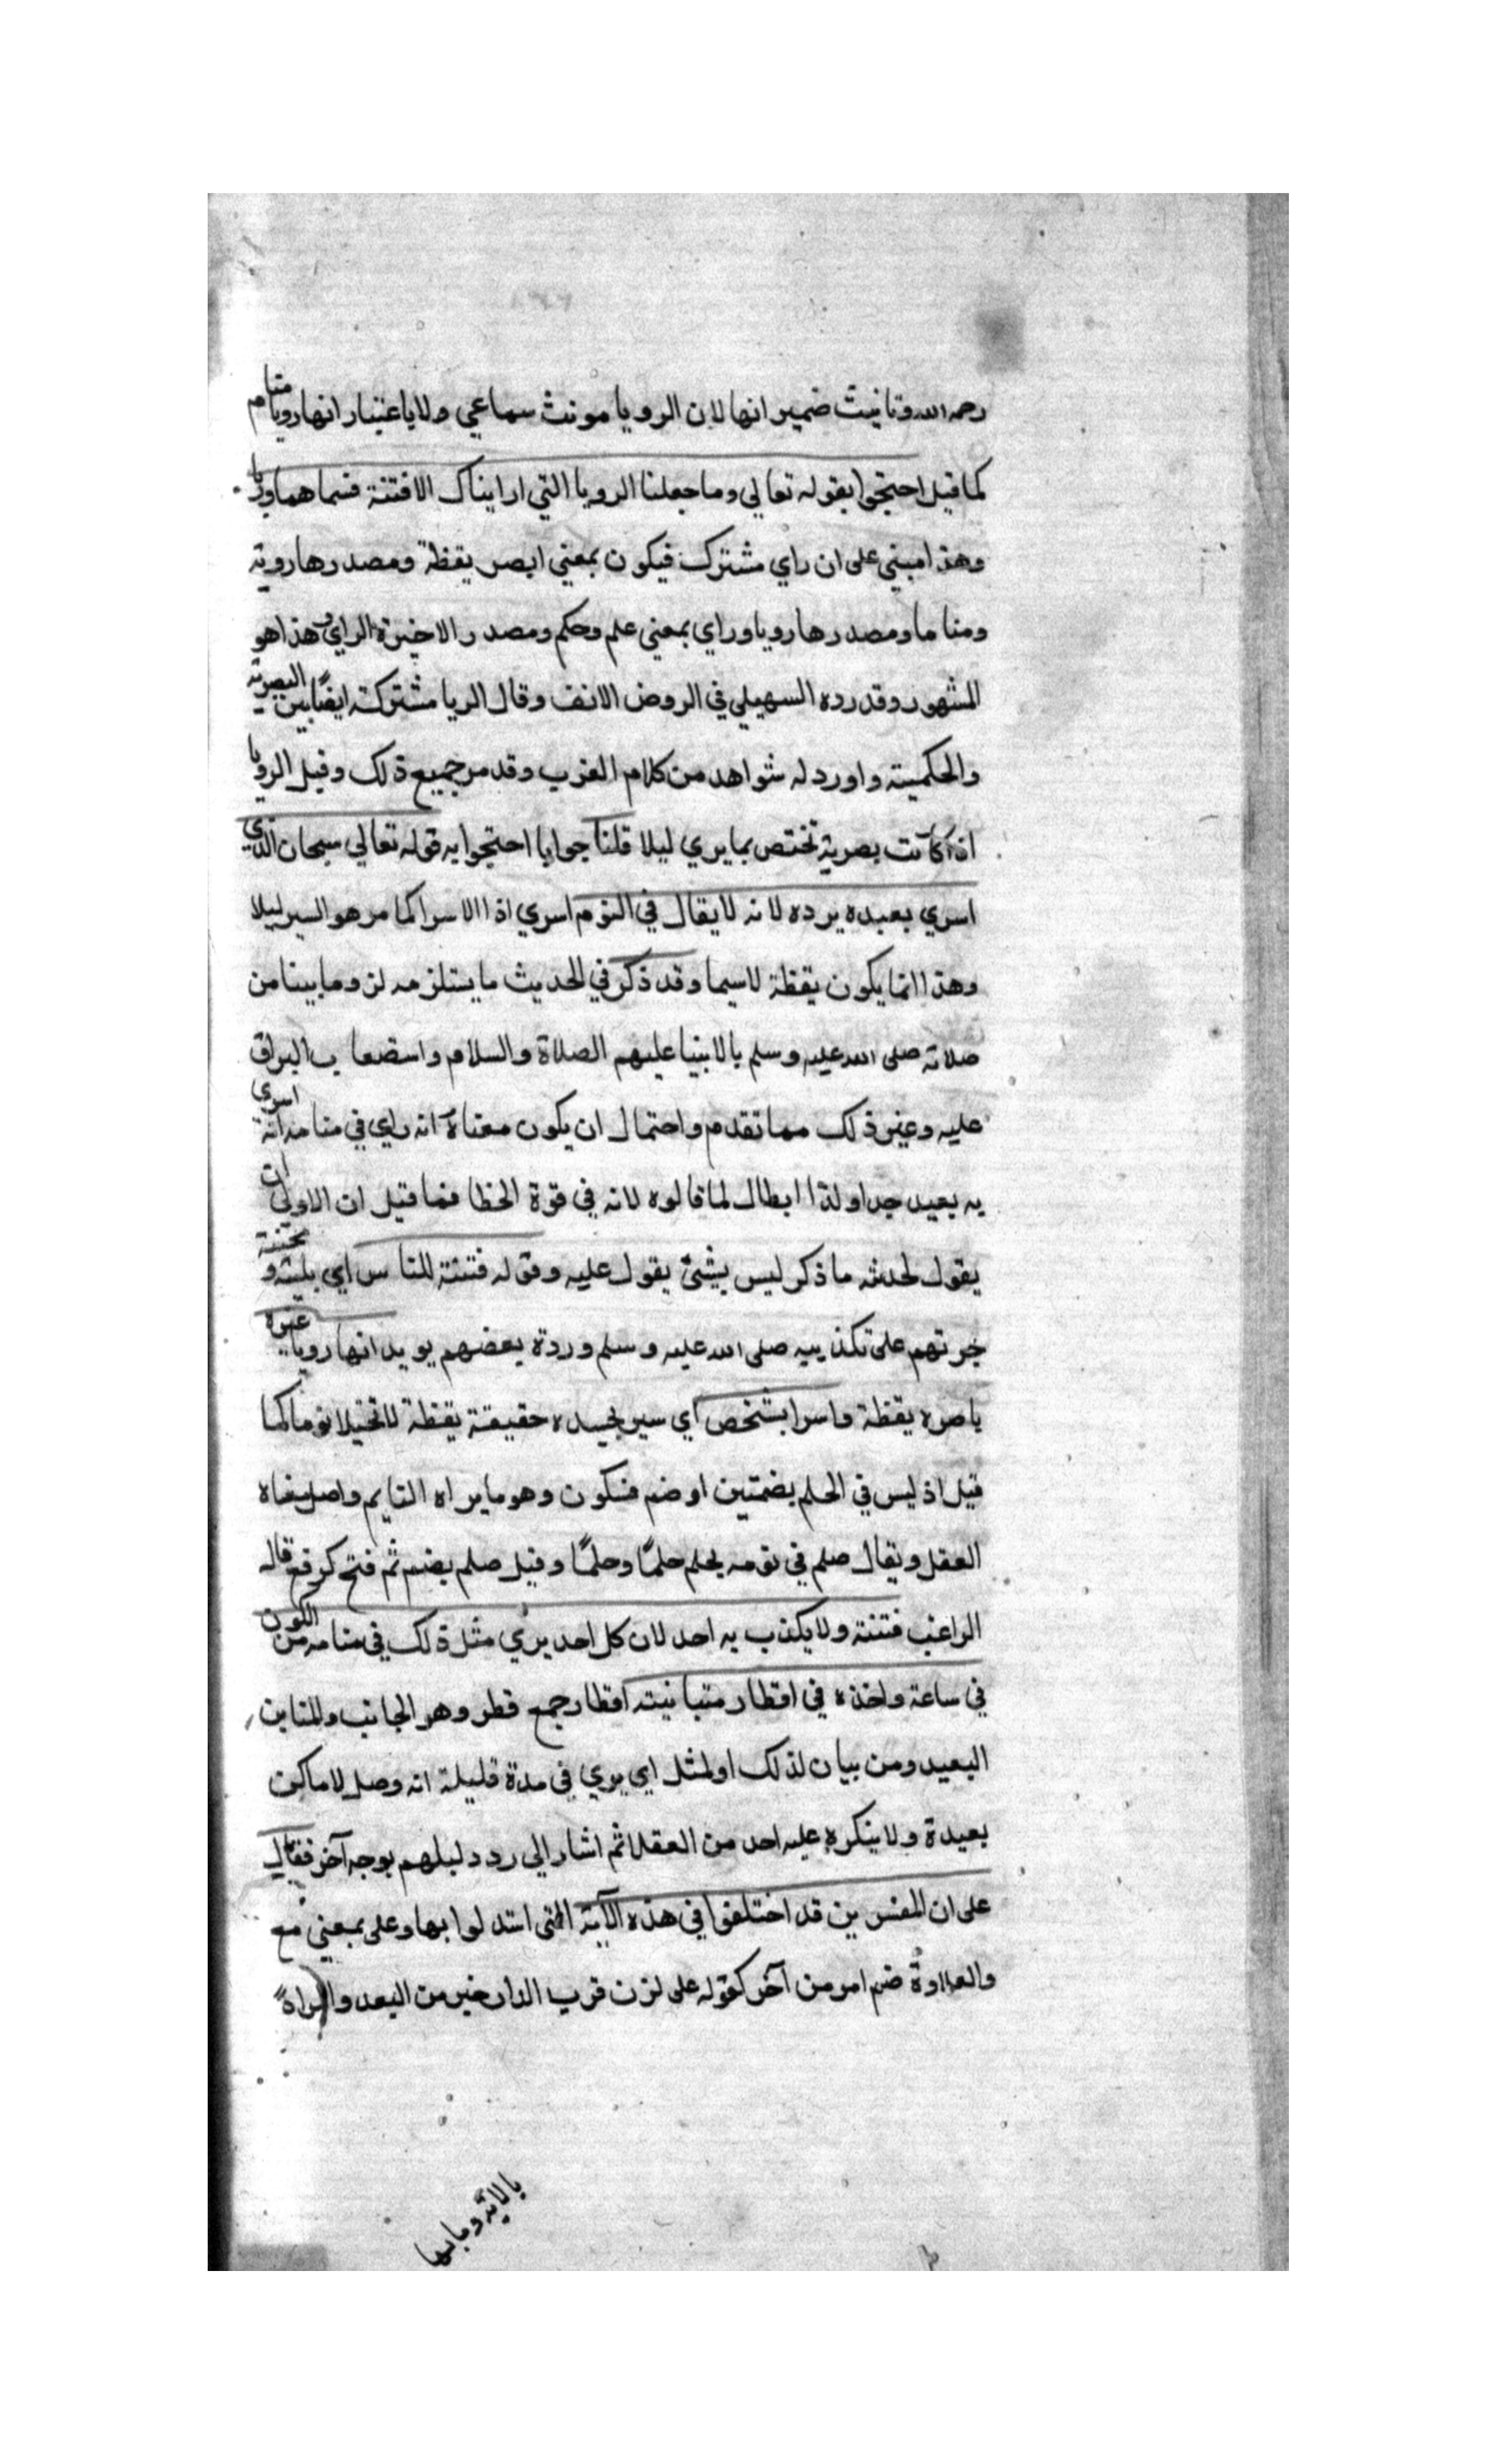 رحمه الله وتانيث ضمير انها لان الرويا مونث سماعي ولا ياعتبار انها رويا منام
كما قيل احتجوا بقوله تعالي وما جعلنا الرويا التي اريناك الا فتنة فسماها رويا
وهذا مبني على ان راي مشترك فيكون بمعني ابصر يقظة ومصدرها روية
ومناما ومصدرها رويا وراي بمعني علم وحكم ومصدر الاخيرة الراي وهذا هو
المشهور وقد رده السهيلي في الروض الانف وقال الريا مشتركة ايضا بين البصرية
والحكمية واورد له شواهد من كلام العرب وقد مر جميع ذلك وقيل الرويا
اذا كانت بصرية تختص بما يري ليلا قلنا جوابا احتجوا به قوله تعالي سبحان الذي
اسري بعبده يرده لانه لا يقال في النوم اسري اذ الاسرا كما مر هو السير ليلا
وهذا انما يكون يقظة لاسيما وقد ذكر في الحديث ما يستلزمه لزوما بينا من
صلاته صلى الله عليه وسلم بالانبيا عليهم الصلاة والسلام واستصعاب البراق
عليه وغير ذلك مما تقدم واحتمال ان يكون معناه انه راي في منامه انه اسري
به بعيد جدا ولذا ابطال لما قالوه لانه في قوة الخطا فما قيل ان الاولي ان
يقول لحدثه ما ذكر ليس بشئ يقول عليه وقوله فتنة للناس اي بلية ومحنة
جرتهم على تكذيبه صلى الله عليه وسلم وردة بعضهم يويد انها رويا عين
باصره يقظة واسرا بشخص اي سير بجسده حقيقة يقظة لا تخيلا نوما كما
قيل اذ ليس في الحلم بضمتين او ضم فسكون وهو ما يراه النايم واصل معناه
العقل ويقال حلم في نومه يحلم حلمًا وحلمًا وقيل حلم بضم ثم فتح كرفع قاله
الراغب فتنة ولا يكذب به احد لان كل احد يري مثل ذلك في منامه من الكون
في ساعة واحذه في اقطار متباينة اقطار جمع قطر وهو الجانب والمتباين
البعيد ومن بيان لذلك او لمثل اي يري في مدة قليلة انه وصل لاماكن
بعيدة ولا ينكره عليه احد من العقلا ثم اشار الي رد دليلهم بوجه آخر فقال
على ان المفسرين قد اختلفوا في هذه الآية التي استدلوا بها وعلى بمعني مع
والعلاوة ضم امر من آخر كقوله على ان قرب الدار خير من البعد والمراد
بالاية وما بها